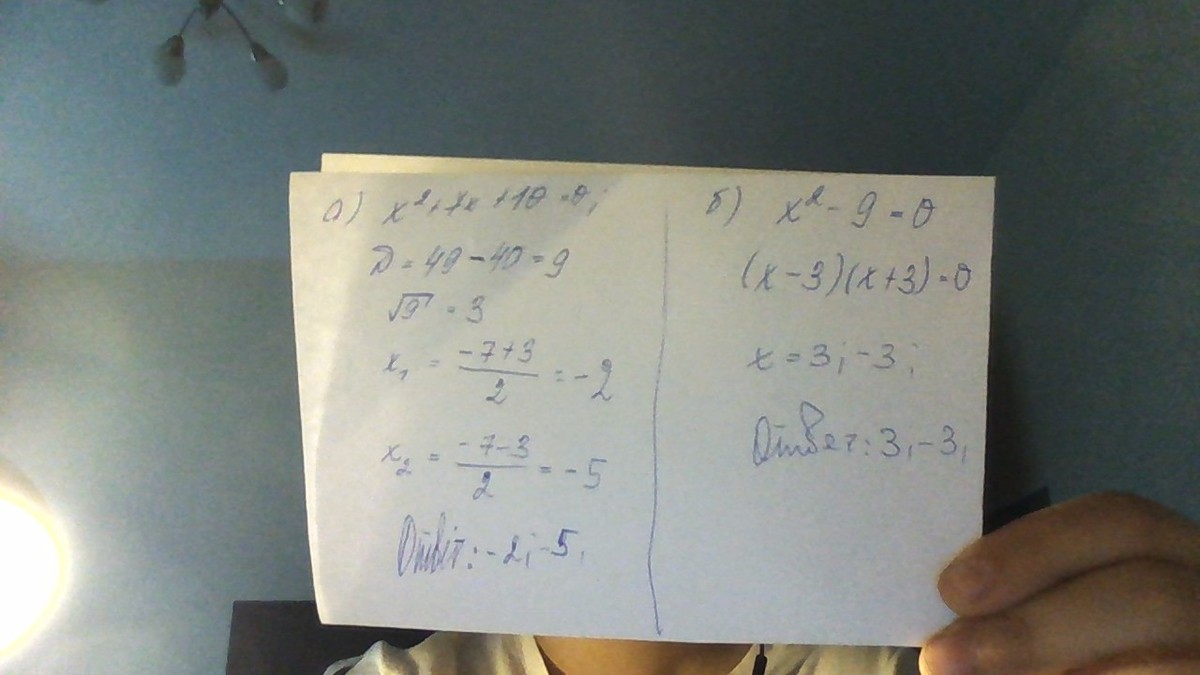 а) x²+7x+10=0;
D=49-40=9
√9=3
x₁ = (-7+3)/2 = -2
x₂ = (-7-3)/2 = -5
Ответ: -2; -5.
б) x²-9=0
(x-3)(x+3)=0
x=3; -3;
Ответ: 3, -3.